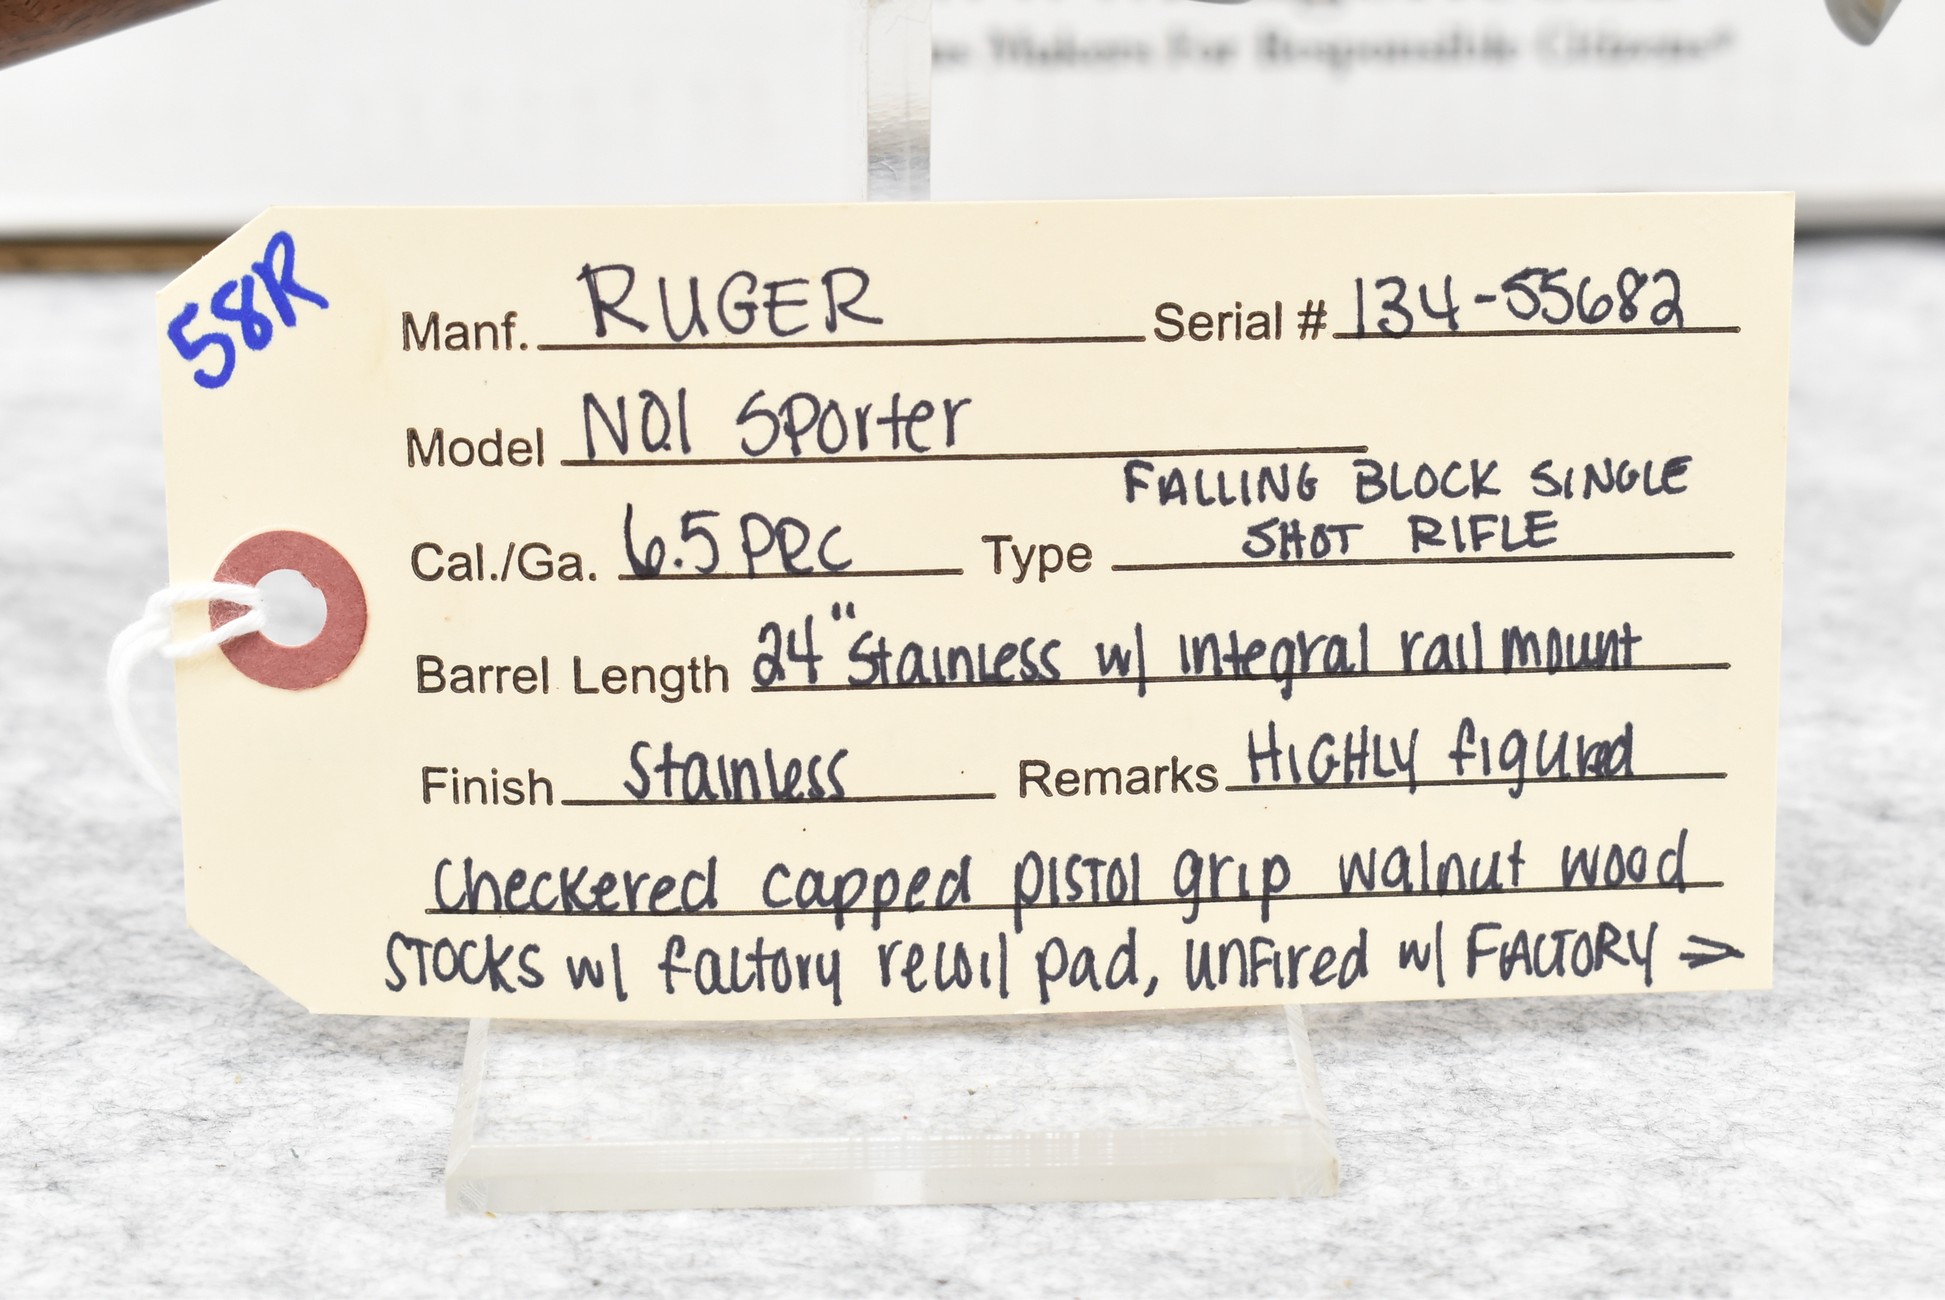 Makers For Responsible Citizens®
58R
Manf. RUGER Serial # 134-55682
Model NO1 Sporter
FALLING BLOCK SINGLE
Cal./Ga. 6.5 PRC Type SHOT RIFLE
Barrel Length 24" Stainless w/ integral rail mount
Finish Stainless Remarks HIGHLY figured
Checkered capped pistol grip walnut wood
STOCKS w/ factory recoil pad, unfired w/ FACTORY →